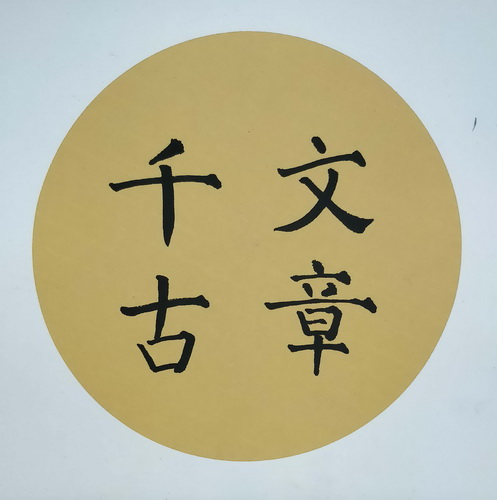 文章
千古